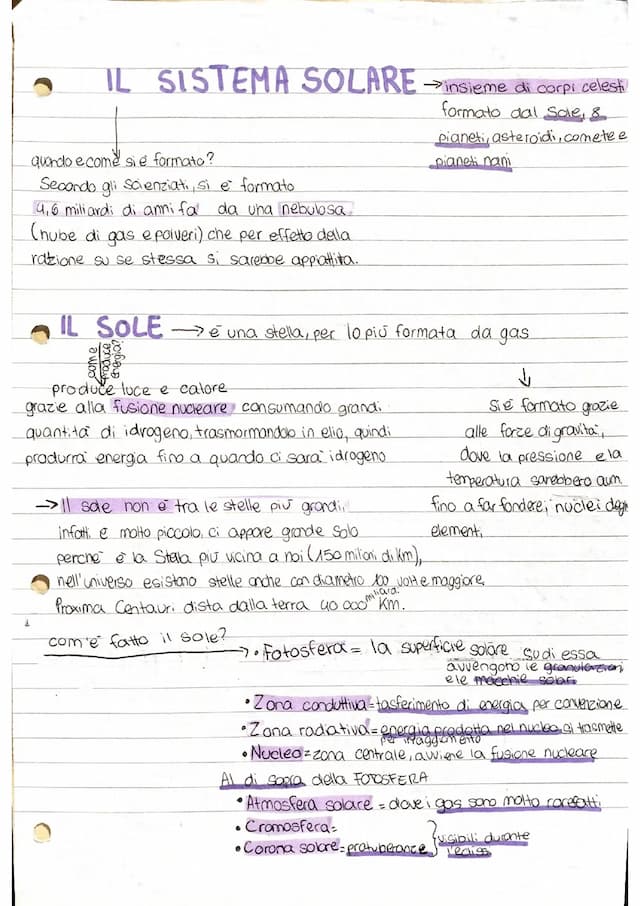 IL SISTEMA SOLARE → insieme di corpi celesti
formato dal Sole, 8
pianeti, asteroidi, comete e
pianeti nani
quando e come si è formato?
Secondo gli scienziati, si è formato
4,6 miliardi di anni fa' da una nebulosa.
(nube di gas e polveri) che per effetto della
razione su se stessa si sarebbe appiattita.
IL SOLE → è una stella, per lo più formata da gas
come produce energia?
produce luce e calore
grazie alla fusione nucleare, consumando grandi
quantità di idrogeno, trasmormandolo in elio, quindi
produrrà energia fino a quando ci sarà idrogeno
Si è formato grazie
alle forze di gravità,
dove la pressione e la
temperatura sarebbero aum
fino a far fondere i nuclei degli
elementi
→ Il sole non è tra le stelle più grandi,
infatti è molto piccolo, ci appare grande solo
perchè è la Stella più vicina a noi (150 milioni di Km),
nell'universo esistono stelle anche con diametro 100 volte maggiore.
Proxima Centauri dista dalla terra 40 000 miliardi Km.
com'è fatto il sole?
→ • Fotosfera = la superficie solare su di essa
avvengono le granulazioni
e le macchie solari
• Zona conduttiva = tasferimento di energia per convenzione
• Zona radiativa = energia prodotta nel nucleo si trasmete
per irraggimento
• Nucleo = zona centrale, avviene la fusione nucleare
Al di sopra della FOTOSFERA
• Atmosfera solare = dove i gas sono molto rarefatti
• Cromosfera =
• Corona solare = protuberanze } visibili durante
l'ecliss